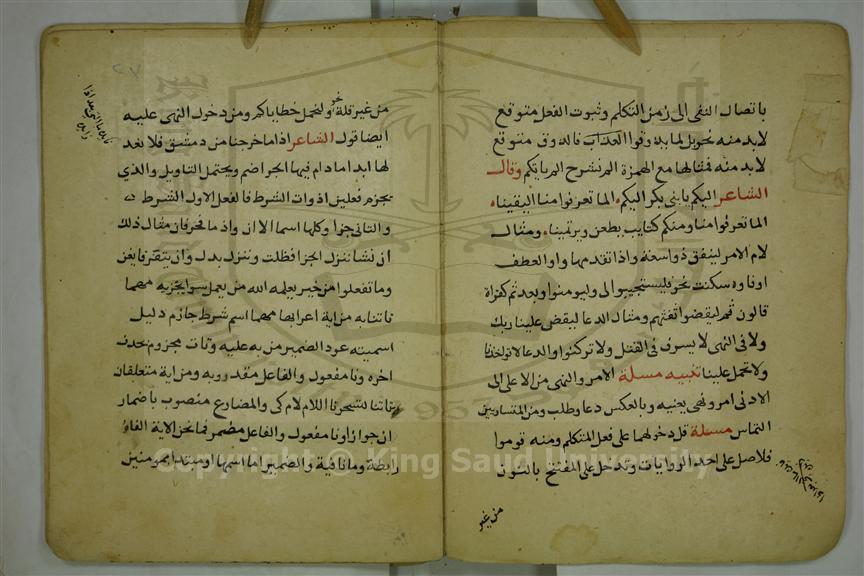 باتصال النفي الى زمن التكلم وثبوت الفعل متوقع
لابد منه نحو بل لما يذوقوا العذاب فالذوق متوقع
لابد منه فمثالها مع الهمزة الم نشرح الم ياتكم وقال
الشاعر اليكم يا بني بكر اليكم الما تعرفوا منا اليقينا
الما تعرفوا منا ومنكم كتايب يطعن ويرتمينا ومثال
لام الامر لينفق ذو سعة واذا تقدمها واو العطف
او فاوه سكنت نحو فليستجيبوا لي وليومنوا وبعد ثم كقراة
قالون ثم ليقضوا تفثهم ومثال الدعا ليقض علينا ربك
ولا في النهي لا يسرف في القتل ولا تركنوا والدعا لا تواخذنا
ولا تحمل علينا تنبيه مسلة الامر والنهي من الاعلى الى
الادنى امر ونهي يعنيه وبالعكس دعا وطلب ومن المتساويين
التماس مسلة قل دخولهما على فعل المتكلم ومنه قوموا
فلاصل على احد الروايات وتدخل على المفتتح بالنون
من غير
من غير قلة نحو ولنحمل خطاياكم ومن دخول النهي عليه
ايضا قول الشاعر اذا ما خرجنا من دمشق فلا نعد
لها ابدا ما دام فيها الجراضم ويحتمل التاويل والذي
يجزم فعلين ادوات الشرط فالفعل الاول الشرط
والثاني جزا وكلها اسما الا ان واذ ما فحرفان مثال ذلك
ان نشا ننزل الجزا فظلت وننزل بدل وان يتفرقا يغن
وما تفعلوا من خير يعلمه الله من يعمل سوا يجز به مهما
تاتنا به من اية اعرابها مهما اسم شرط جازم دليل
اسميته عود الضمير من به عليه وتات مجزوم بحذف
اخره ونا مفعول والفاعل مقدر وبه ومن اية متعلقان
بتاتنا لتسحرنا اللام لام كي والمضارع منصوب باضمار
ان جوازا ونا مفعول والفاعل مضمر فما نحن الاية الفاء
رابطة وما نافية والضمير اما اسمها او مبتدا بمومنين
Copyright © King Saud University
1957